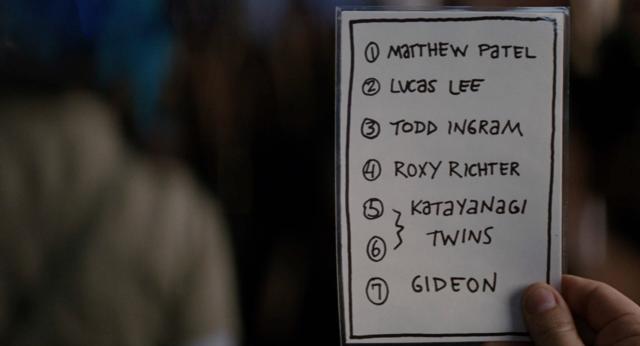 ① MATTHEW PATEL
② LUCAS LEE
③ TODD INGRAM
④ ROXY RICHTER
⑤ KATAYANAGI
⑥ TWINS
⑦ GIDEON